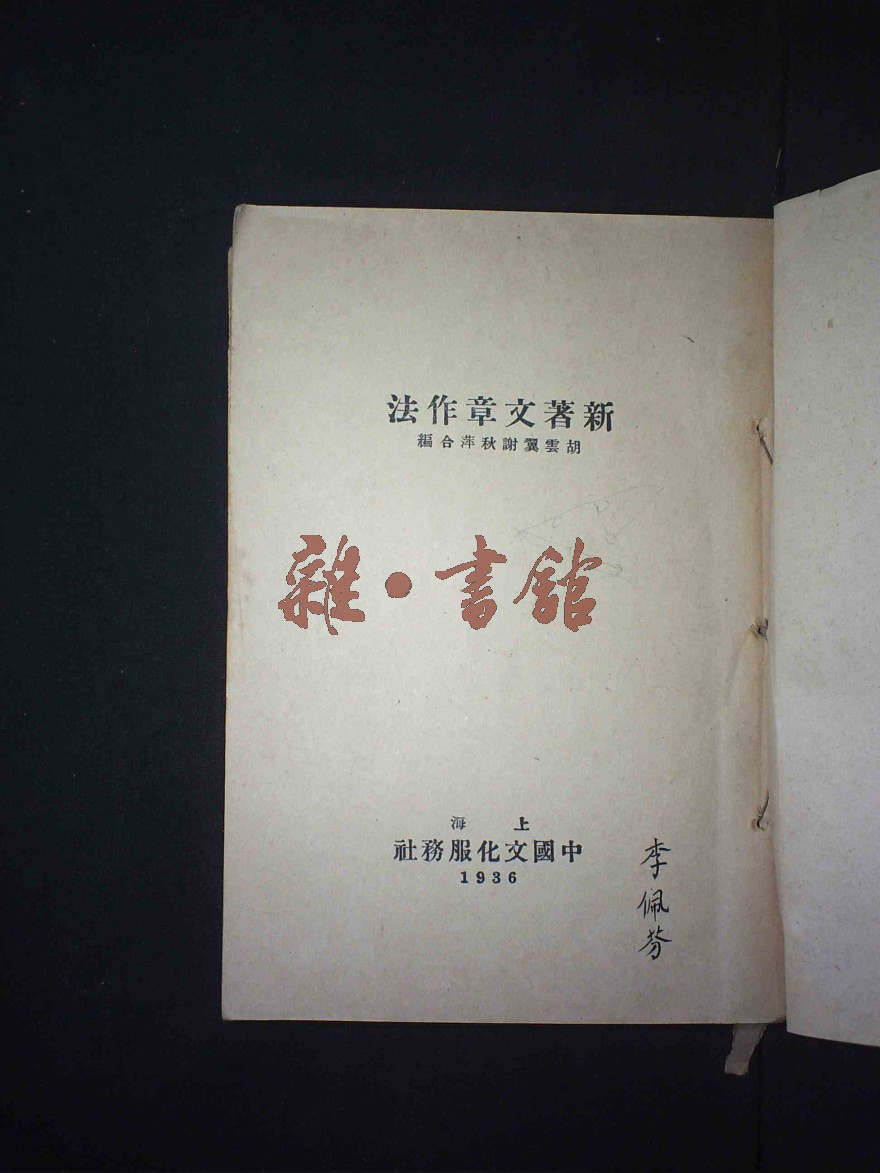 新著文章作法
胡雲翼謝秋萍合編
雜·書館
上海
中國文化服務社
1936
李佩芬